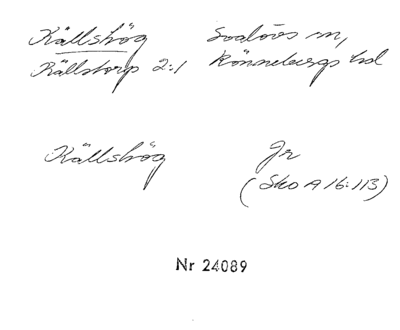 Källshög Svalövs sn,
Källstorp 2:1 Rönnebergs hd
Källshög Jr
(Sko A 16:113)
Nr 24089